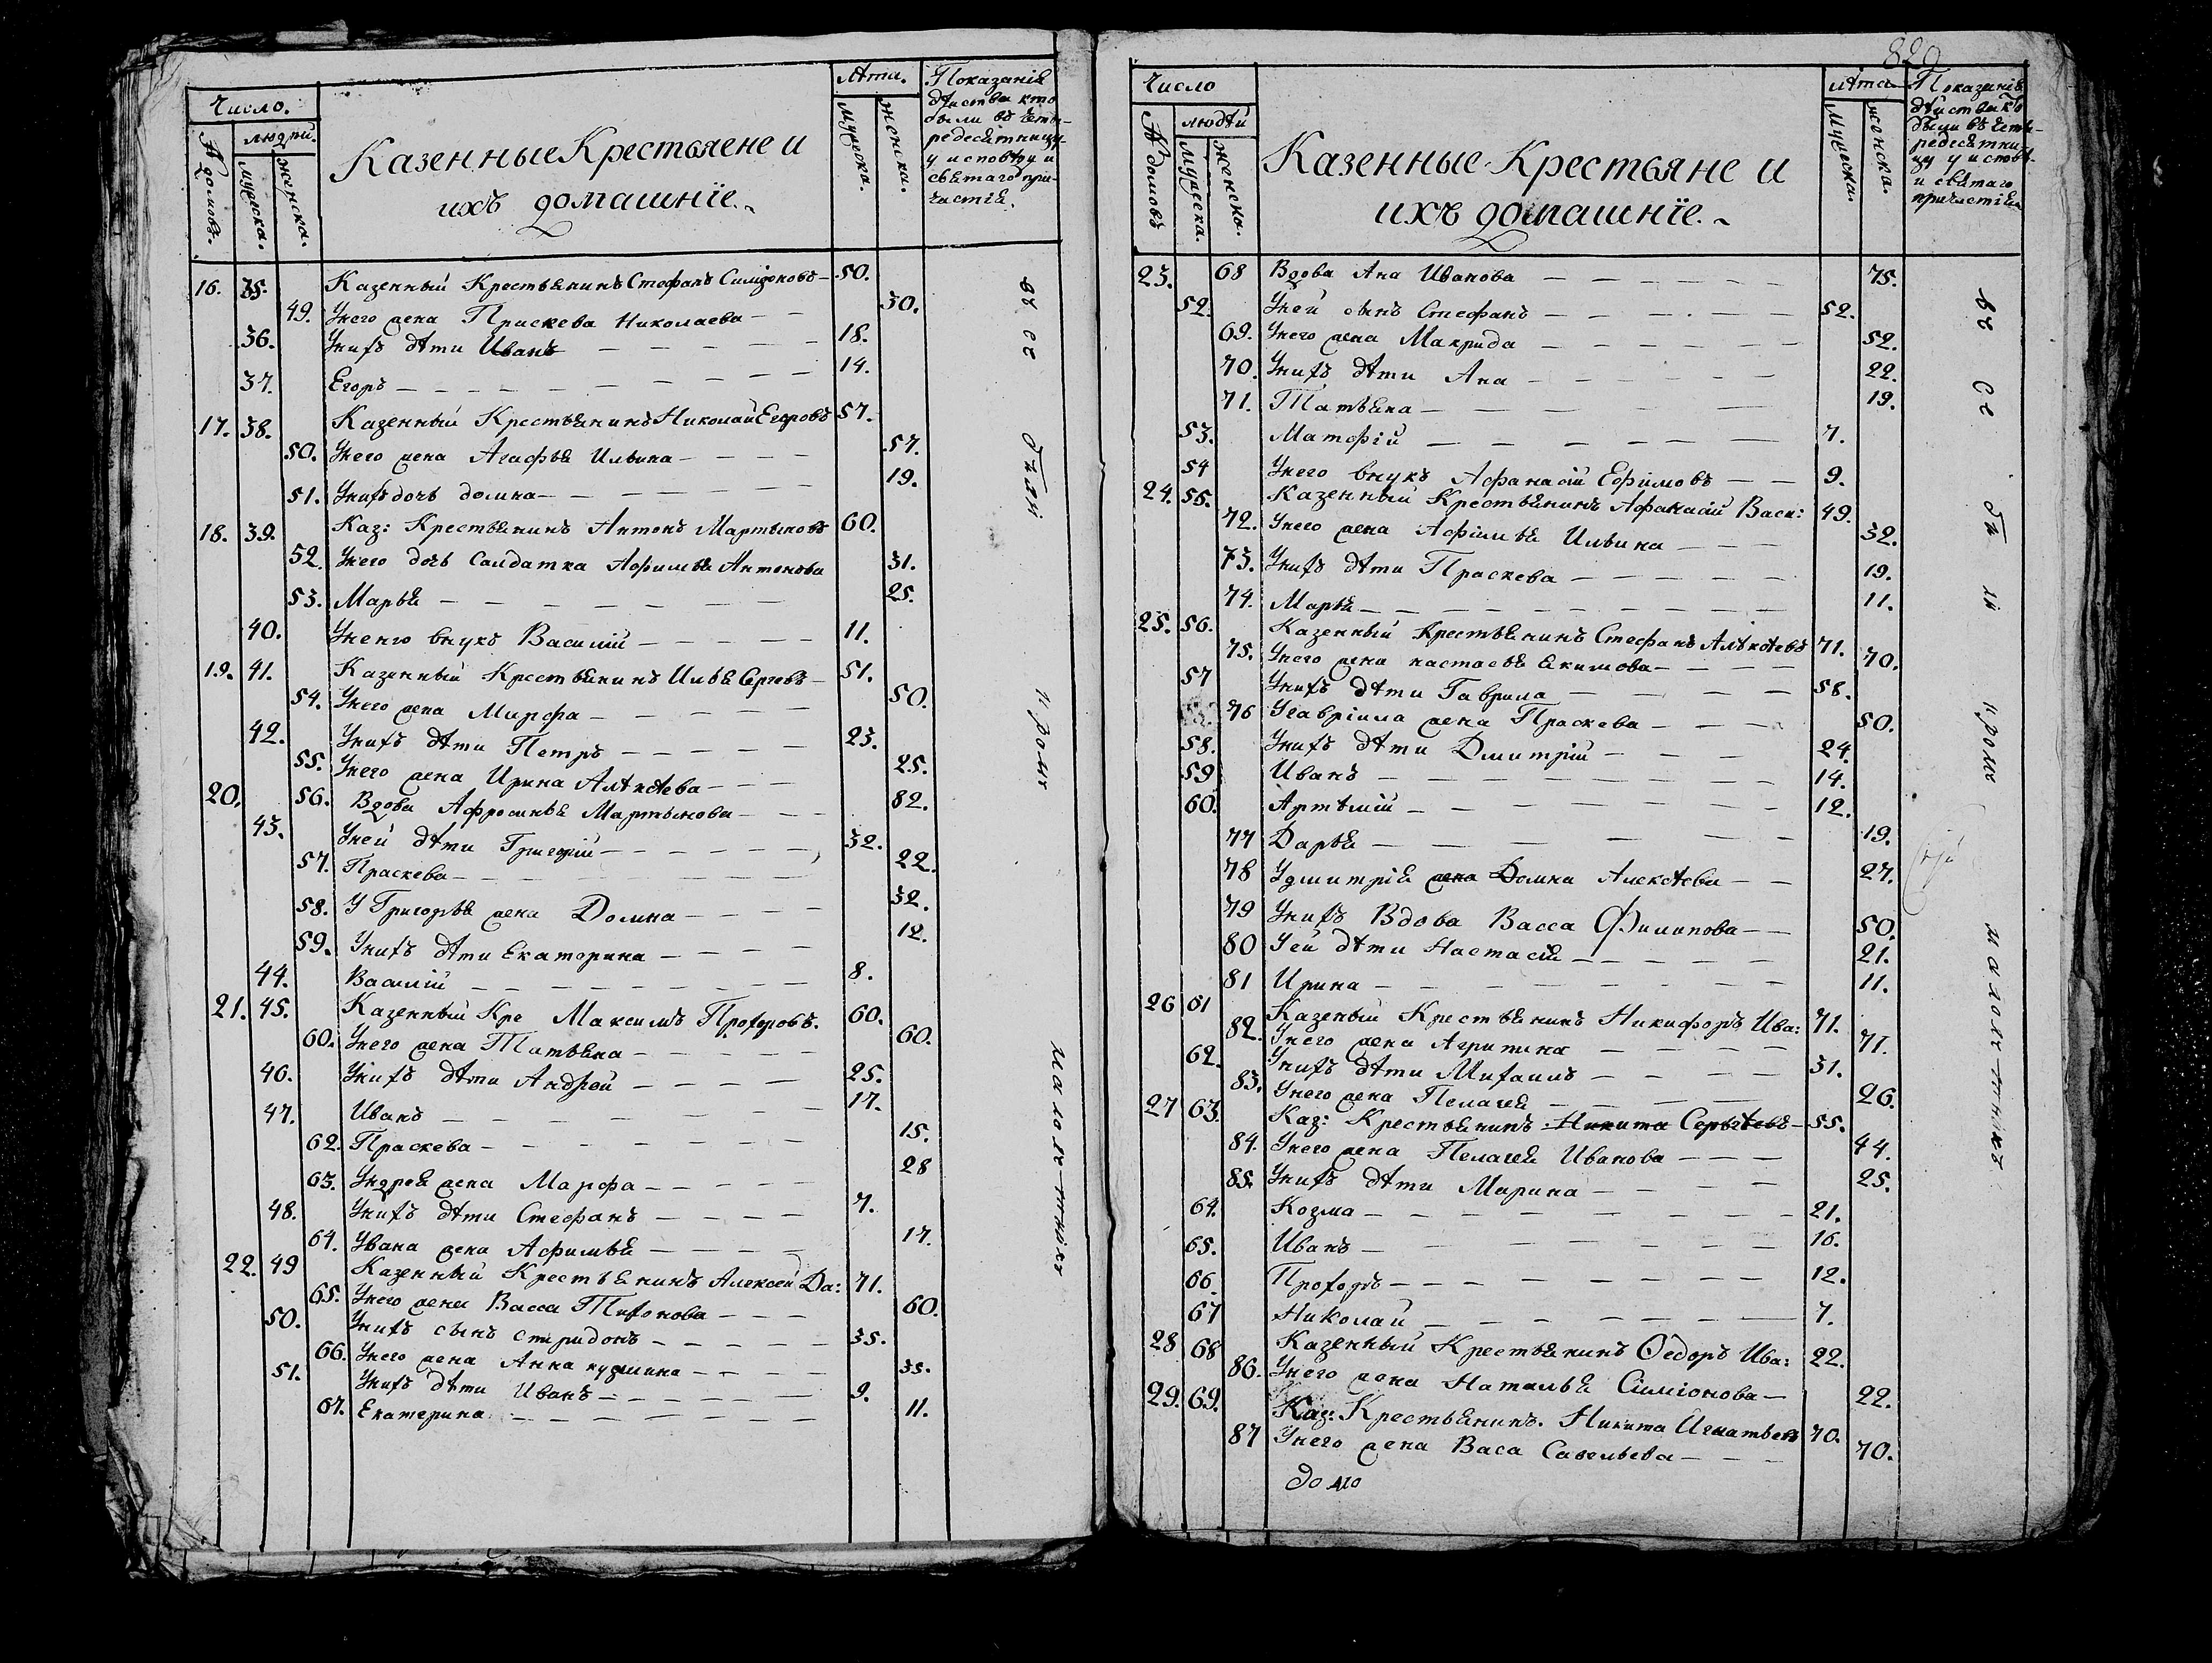 Число.
людѣй.
№ домовъ.
мужеска.
женска.
Казенные Крестьяне и
ихъ домашнїе.
Лѣта.
мужеска.
женска.
Показанія
дѣйства кто
были въ четы-
редесятницу
у исповѣди и
святаго при-
частія.
16. 35. Казенный Крестьянинъ Стефанъ Симіоновъ — 50.
49. Унего жена Праскева Николаева — — 30.
36. Унихъ дѣти Иванъ — — — — — 18.
37. Егоръ — — — — — — — — 14.
17. 38. Казенный Крестьянинъ Николай Егоровъ 57.
50. Унего жена Агафья Ильина — — — — 57.
51. Унихъ дочь домна — — — — — — 19.
18. 39. Каз: Крестьянинъ Антонъ Мартыновъ 60.
52. Унего дочь Салдатка Афимья Антонова 31.
53. Марья — — — — — — — 25.
40. Уненго внукъ Василій — — — — 11.
19. 41. Казенный Крестьянинъ Илья Сергевъ — 51.
54. Унего жена Марфа — — — — — 50.
42. Унихъ дѣти Петръ — — — — — 23.
55. Унего жена Ирина Алѣксѣева — — — 25.
20. 56. Вдова Афросинья Мартынова — — — 82.
43. Уней дѣти Григорій — — — — — — 32.
57. Праскева — — — — — — — — 22.
58. У Григорья жена Домна — — — — 32.
59. Унихъ дѣти Екатерина — — — 12.
44. Василій — — — — — — — — 8.
21. 45. Казенный Кре Максимъ Прохоровъ. 60.
60. Унего жена Татьяна — — — — — 60.
46. Унихъ дѣти Андрей — — — — 25.
47. Иванъ — — — — — — — 17.
62. Праскева — — — — — — — 15.
63. Ундрея жена Марфа — — — — — 28
48. Унихъ дѣти Стефанъ — — — — 7.
64. Увана жена Афимья — — — — 17.
22. 49 Казенный Крестьянинъ Алексей Да: 71.
65. Унего жена Васса Тихонова — — — 60.
50. Унихъ сынъ спиридонъ — — — — — 35.
66. Унего жена Анна кузмина — — — — 35.
51. Унихъ дѣти Иванъ — — — — — — 9.
67. Екатерина — — — — — — — — 11.
всѣ
были
кромѣ
малолѣтнихъ
829
Число
людѣй
№ домовъ
мужеска.
женска.
Казенные Крестьяне и
ихъ домашнїе.
Лѣта
мужеска.
женска.
Показанія
дѣйства кто
были въ четы-
редесятни-
цу у исповѣ-
и святаго
причастія
23. 68 Вдова Ана Иванова — — — — — — 75.
52. Уней сынъ Стефанъ — — — — — — 52.
69. Унего жена Макрида — — — — — — 52.
70. Унихъ дѣти Ана — — — — — 22.
71. Татьяна — — — — — — 19.
53. Матфій — — — — — — — 7.
54 Унего внукъ Афанасій Ефимовъ — — 9.
24. 55. Казенный Крестьянинъ Афанасій Васи: 49.
72. Унего жена Афимья Ильина — — — 32.
73. Унихъ дѣти Праскева — — — — — 19.
74. Марья — — — — — — — — — 11.
25. 56. Казенный Крестьянинъ Стефанъ Алѣксѣевъ 71.
75. Унего жена настасья якимова — — — — 70.
57 Унихъ дѣти Гаврила — — — — 58.
76 Угавріила жена Праскева — — — — 50.
58. Унихъ дѣти Дмитрій — — — — 24.
59 Иванъ — — — — — — — — 14.
60. Артѣмій — — — — — — — — 12.
77 Дарья — — — — — — 19.
78 Удмитрія жена Домна Алексѣева — — 27.
79 Унихъ Вдова Васса Филипова — — 50.
80 Уей дѣти Настасія — — — — — 21.
81 Ирина — — — — — — — — 11.
26 61 Казеный Крестьянинъ Никифоръ Ива: 71.
82. Унего жена Агрипина — — — — 71.
62. Унихъ дѣти Михаилъ — — — — 31.
83. Унего жена Пелагея — — — — — 26.
27 63. Каз: Крестьянинъ Никита Сергѣевъ — 55.
84. Унего жена Пелагея Иванова — — — 44.
85. Унихъ дѣти Марина — — — — 25.
64. Козма — — — — — — — — 21.
65. Иванъ — — — — — — — — 16.
66. Прохоръ — — — — — — — — 12.
67 Николай — — — — — — — 7.
28 68 Казенный Крестьянинъ Ѳедоръ Ива: 22.
86. Унего жена Наталья Симіонова — 22.
29. 69. Каз: Крестьянинъ. Никита Игнатьевъ 70.
87 Унего жена Васа Савельева — — — 70.
всѣ
были
кромѣ
малолѣтнихъ